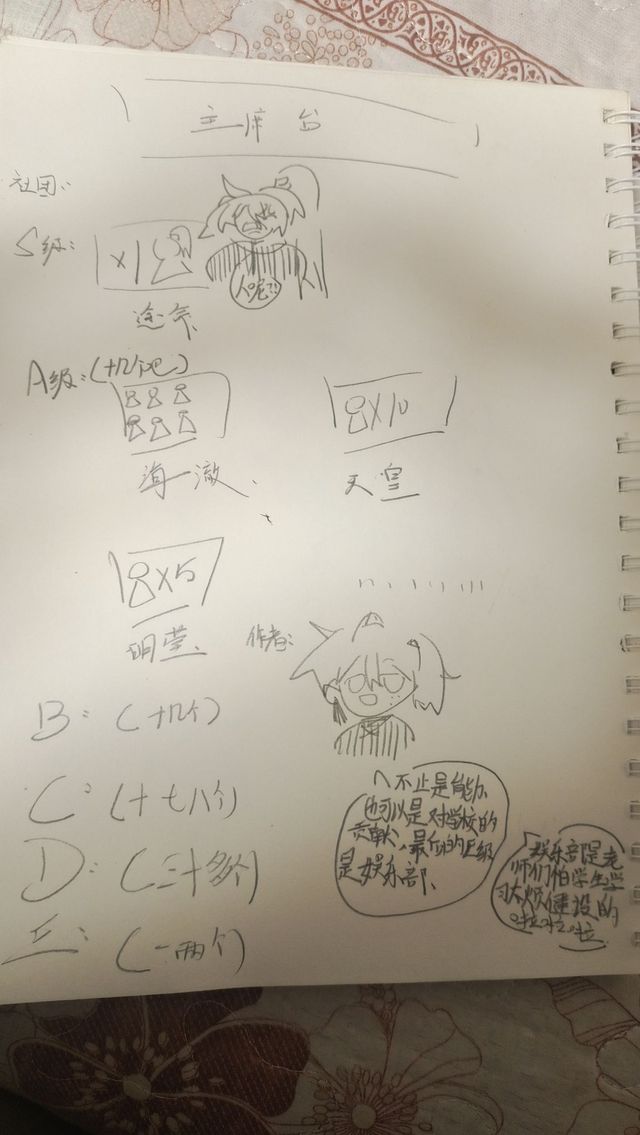 主席台
社团:
S级:
×1
人呢?!
途气
A级:(十几个吧)
海一澈
×10
天皇
×5
明莹
作者:
B: (十几个)
C: (十七八个)
D: (三十多个)
E: (一两个)
不止是能力
也可以是对学校的
贡献,最后的E级
是娱乐部、
娱乐部是老
师们怕学生学
习太烦建设的
啦啦啦